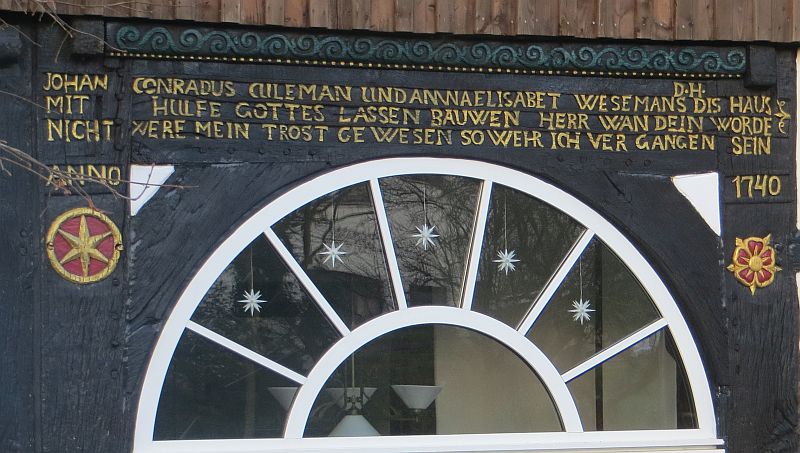 D·H·
JOHAN CONRADUS CULEMAN UND ANNA ELISABET WESEMANS DIS HAUS
MIT HULFE GOTTES LASSEN BAUWEN HERR WAN DEIN WORDE
NICHT WERE MEIN TROST GEWESEN SO WEHR ICH VERGANGEN SEIN
ANNO 1740